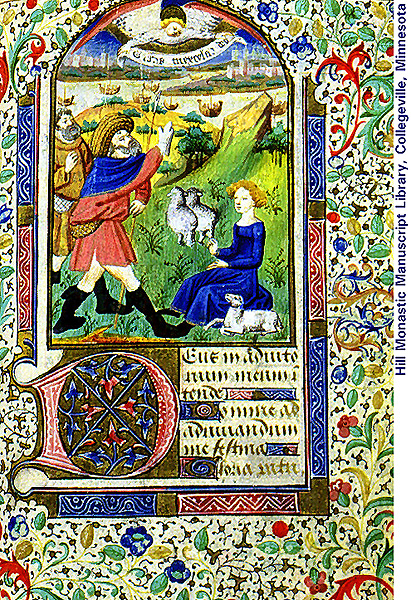 Gloria in excelsis de
Deus in adiuto
rium meum
tende
Domine ad
diuuandum
me festina
Gloria patri
Hill Monastic Manuscript Library, Collegeville, Minnesota